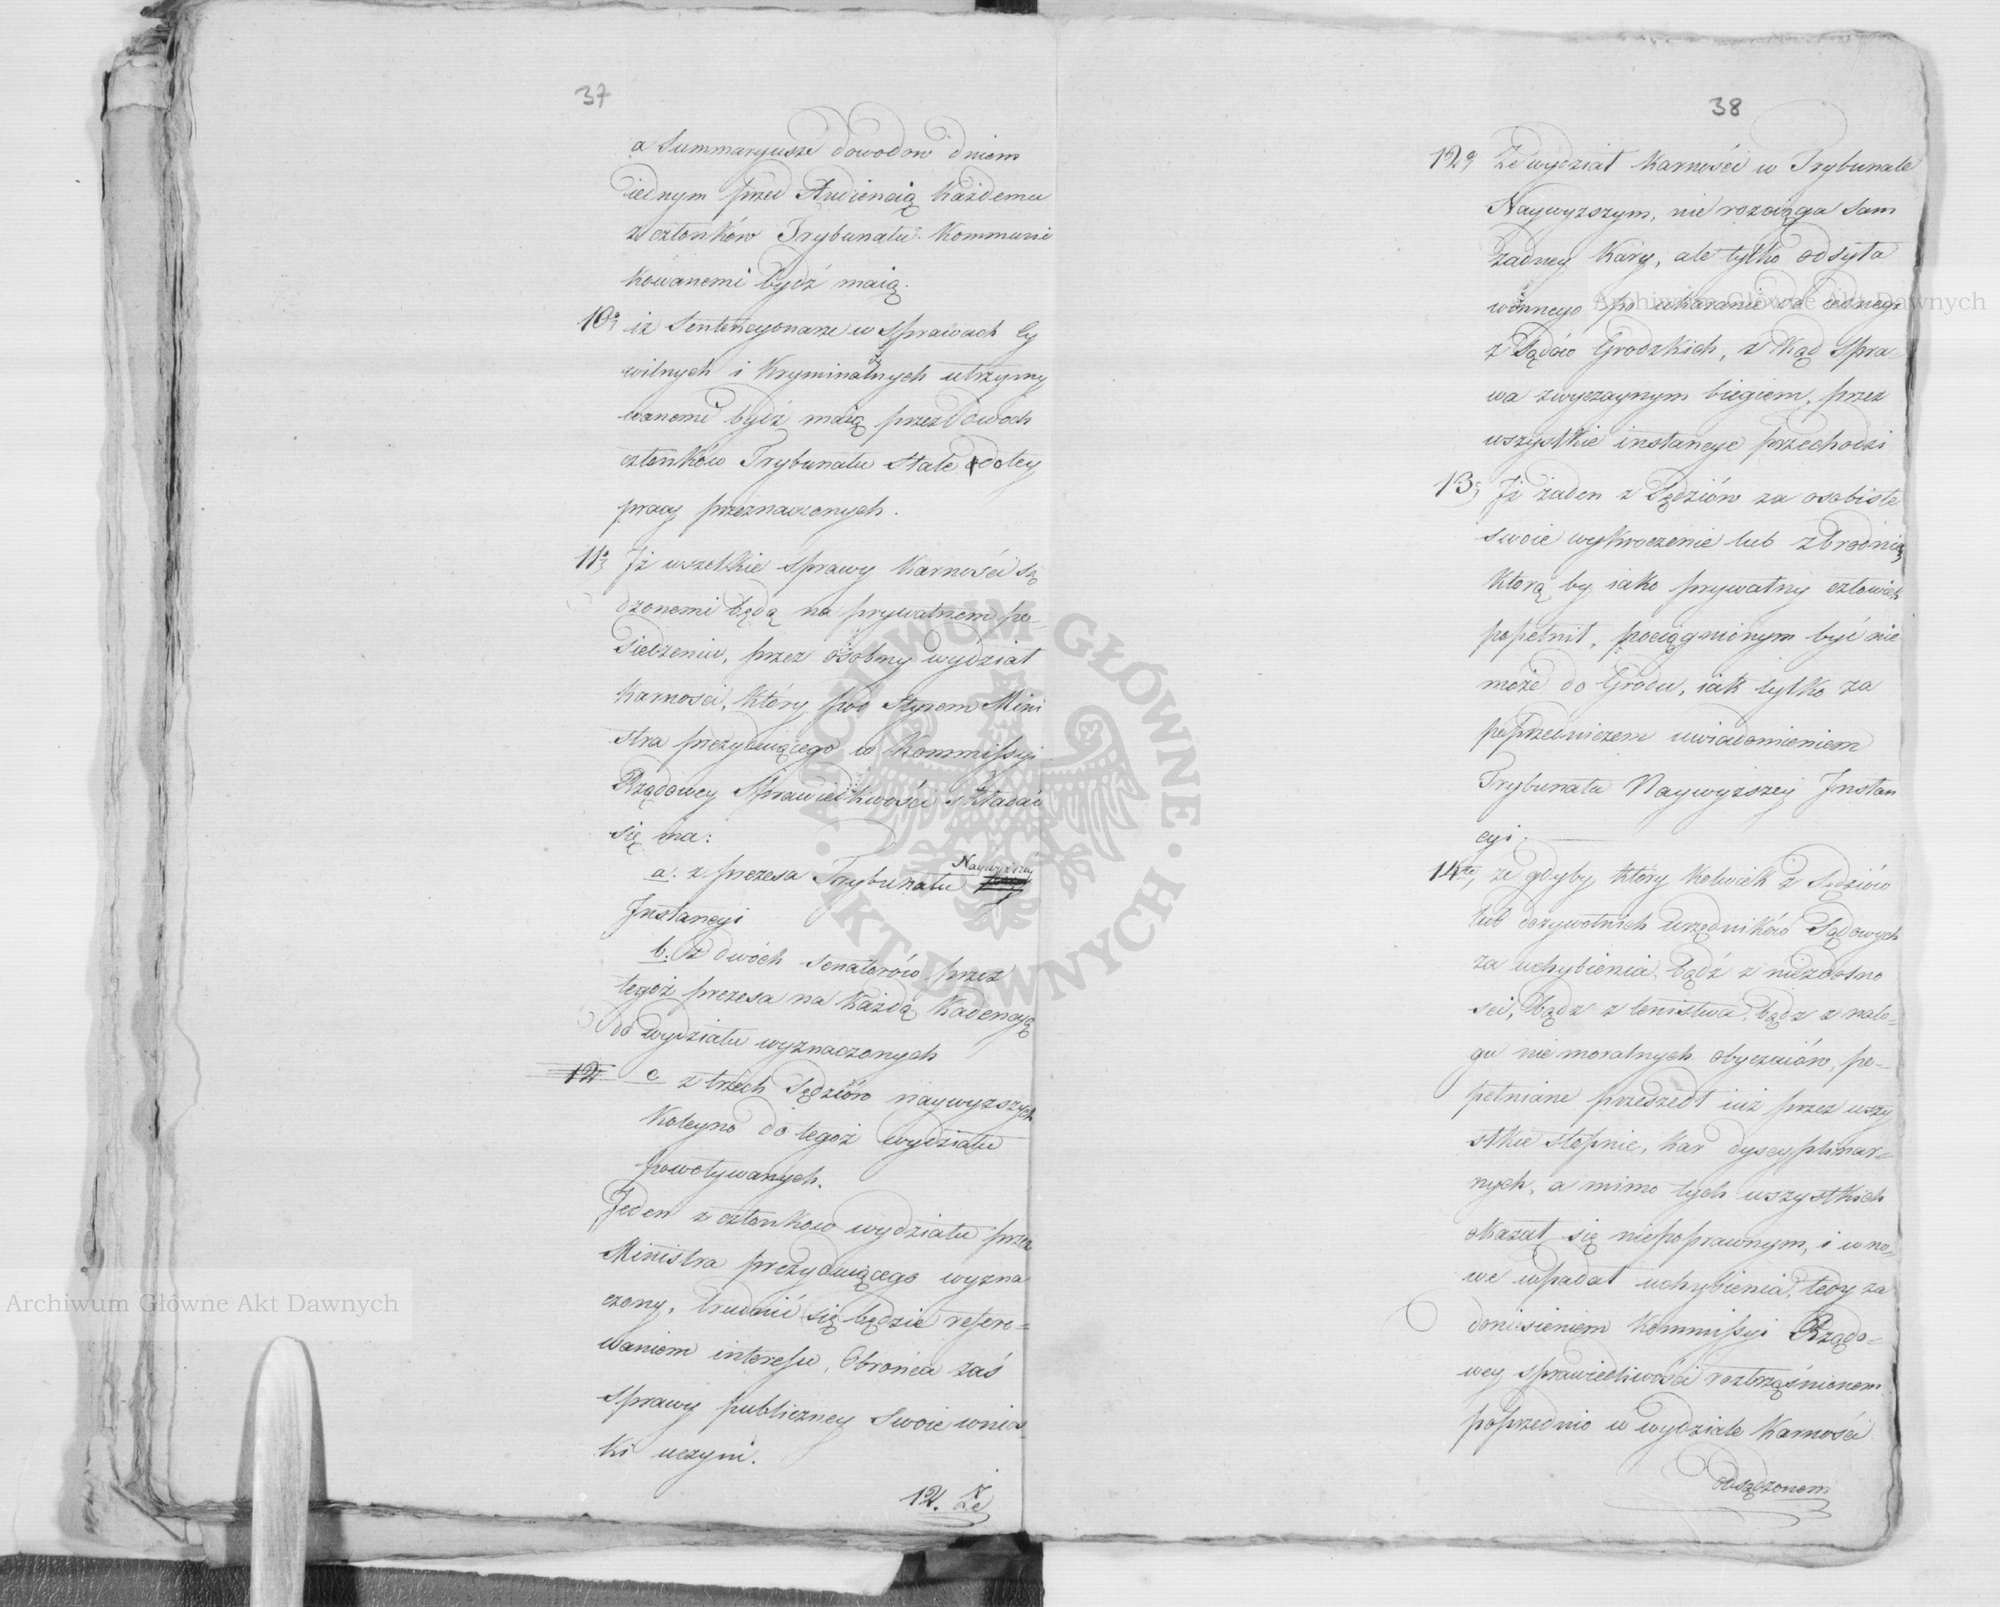 37
a Summaryusze dowodow dniem
iednym przed Audiencią każdemu
z członków Trybunału kommuni
kowanemi bydź maią.
10o, iż Sentencyonarze w sprawach Cy
wilnych i Kryminalnych utrzymy
wanemi bydź maią przez dwoch
członków Trybunału stale do tey
pracy przeznaczonych.
11o, Iż wszelkie sprawy karności są
dzonemi będą na prywatnem po-
siedzeniu, przez osobny wydział
karności, który pod Sterem Mini
stra prezyduiącego w Kommissyi
Rządowey Sprawiedliwości składać
się ma:
a. z prezesa Trybunału Naywyższey
Instancyi
b. z dwóch senatorów przez
tegoż prezesa na każdą Kadencyą
do wydziału wyznaczonych
12 c z trzech Sędziów naywyzszych
koleyno do tegoż wydziału
powoływanych.
Jeden z członkow wydziału przez
Ministra prezyduiącego wyzna
czony, trudnić się będzie refero=
waniem interessu, Obrońca zaś
sprawy publiczney swoie wnios
ki uczyni.
12. Że
38
12o, Że wydział karności w Trybunale
Naywyzszym, nie rozciąga sam
żadney kary, ale tylko odsyła
winnego po ukaranie do iednego
z Sądów Grodzkich, z kąd spra-
wa zwyczaynym biegiem, przez
wszystkie instancye przechodzi
13o, Iż żaden z Sędziów za osobiste
swoie wykroczenie lub zbrodnię,
którą by iako prywatny człowiek
popełnił, pociągnionym być nie
może do Grodu, iak tylko za
poprzedniczem uwiadomieniem
Trybunału Naywyższey Instan
cyi.
14te, że gdyby który kolwiek z Sędziów
lub dożywotnich urzędników Sądowych
za uchybienia, bądź z niezdolno
sci, bądz z lenistwa, bądz z nało-
gu niemoralnych obyczaiów, po-
pełniane przeszedł iuż przez wszy
stkie stopnie, kar dyscyplinar=
nych, a mimo tych wszystkich
okazał się niepoprawnym, i w no-
we wpadał uchybienia, tedy za
doniesieniem Kommissyi Rządo=
wey sprawiedliwości roztrząśnionem
poprzednio w wydziale karności
osądzonem
Archiwum Główne Akt Dawnych
Archiwum Główne Akt Dawnych
ARCHIWUM GŁÓWNE · AKT DAWNYCH ·